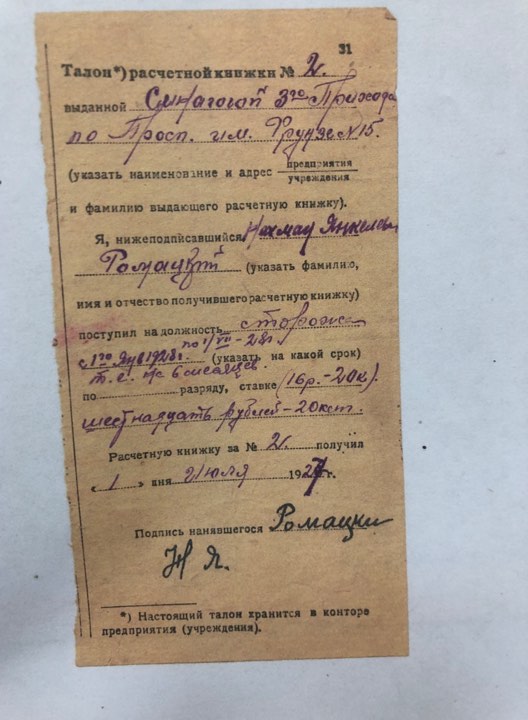 31
Талон*) расчетной книжки № 2.
выданной Синагогой 3го Прихода
по Просп. им. Фрунзе № 15.
(указать наименование и адрес предприятия
учреждения
и фамилию выдающего расчетную книжку).
Я, нижеподписавшийся, Нахман Янкелев
Ромацкий (указать фамилию,
имя и отчество получившего расчетную книжку)
поступил на должность сторожа
с 1го Янв 1928г. по 1/VII - 28г. (указать, на какой срок)
т. е. на 6 месяцев
по разряду, ставке (16р.-20к).
шестнадцать рублей - 20 коп.
Расчетную книжку за № 2. получил
« 1 » дня Июля 1927г.
Подпись нанявшегося Ромацки
Я.
*) Настоящий талон хранится в конторе
предприятия (учреждения).